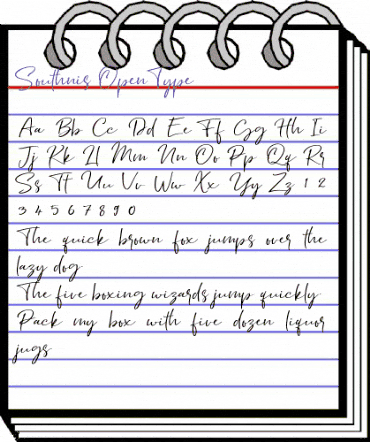 Southnis OpenType
Aa Bb Cc Dd Ee Ff Gg Hh Ii
Jj Kk Ll Mm Nn Oo Pp Qq Rr
Ss Tt Uu Vv Ww Xx Yy Zz 1 2
3 4 5 6 7 8 9 0
The quick brown fox jumps over the
lazy dog
The five boxing wizards jump quickly
Pack my box with five dozen liquor
jugs